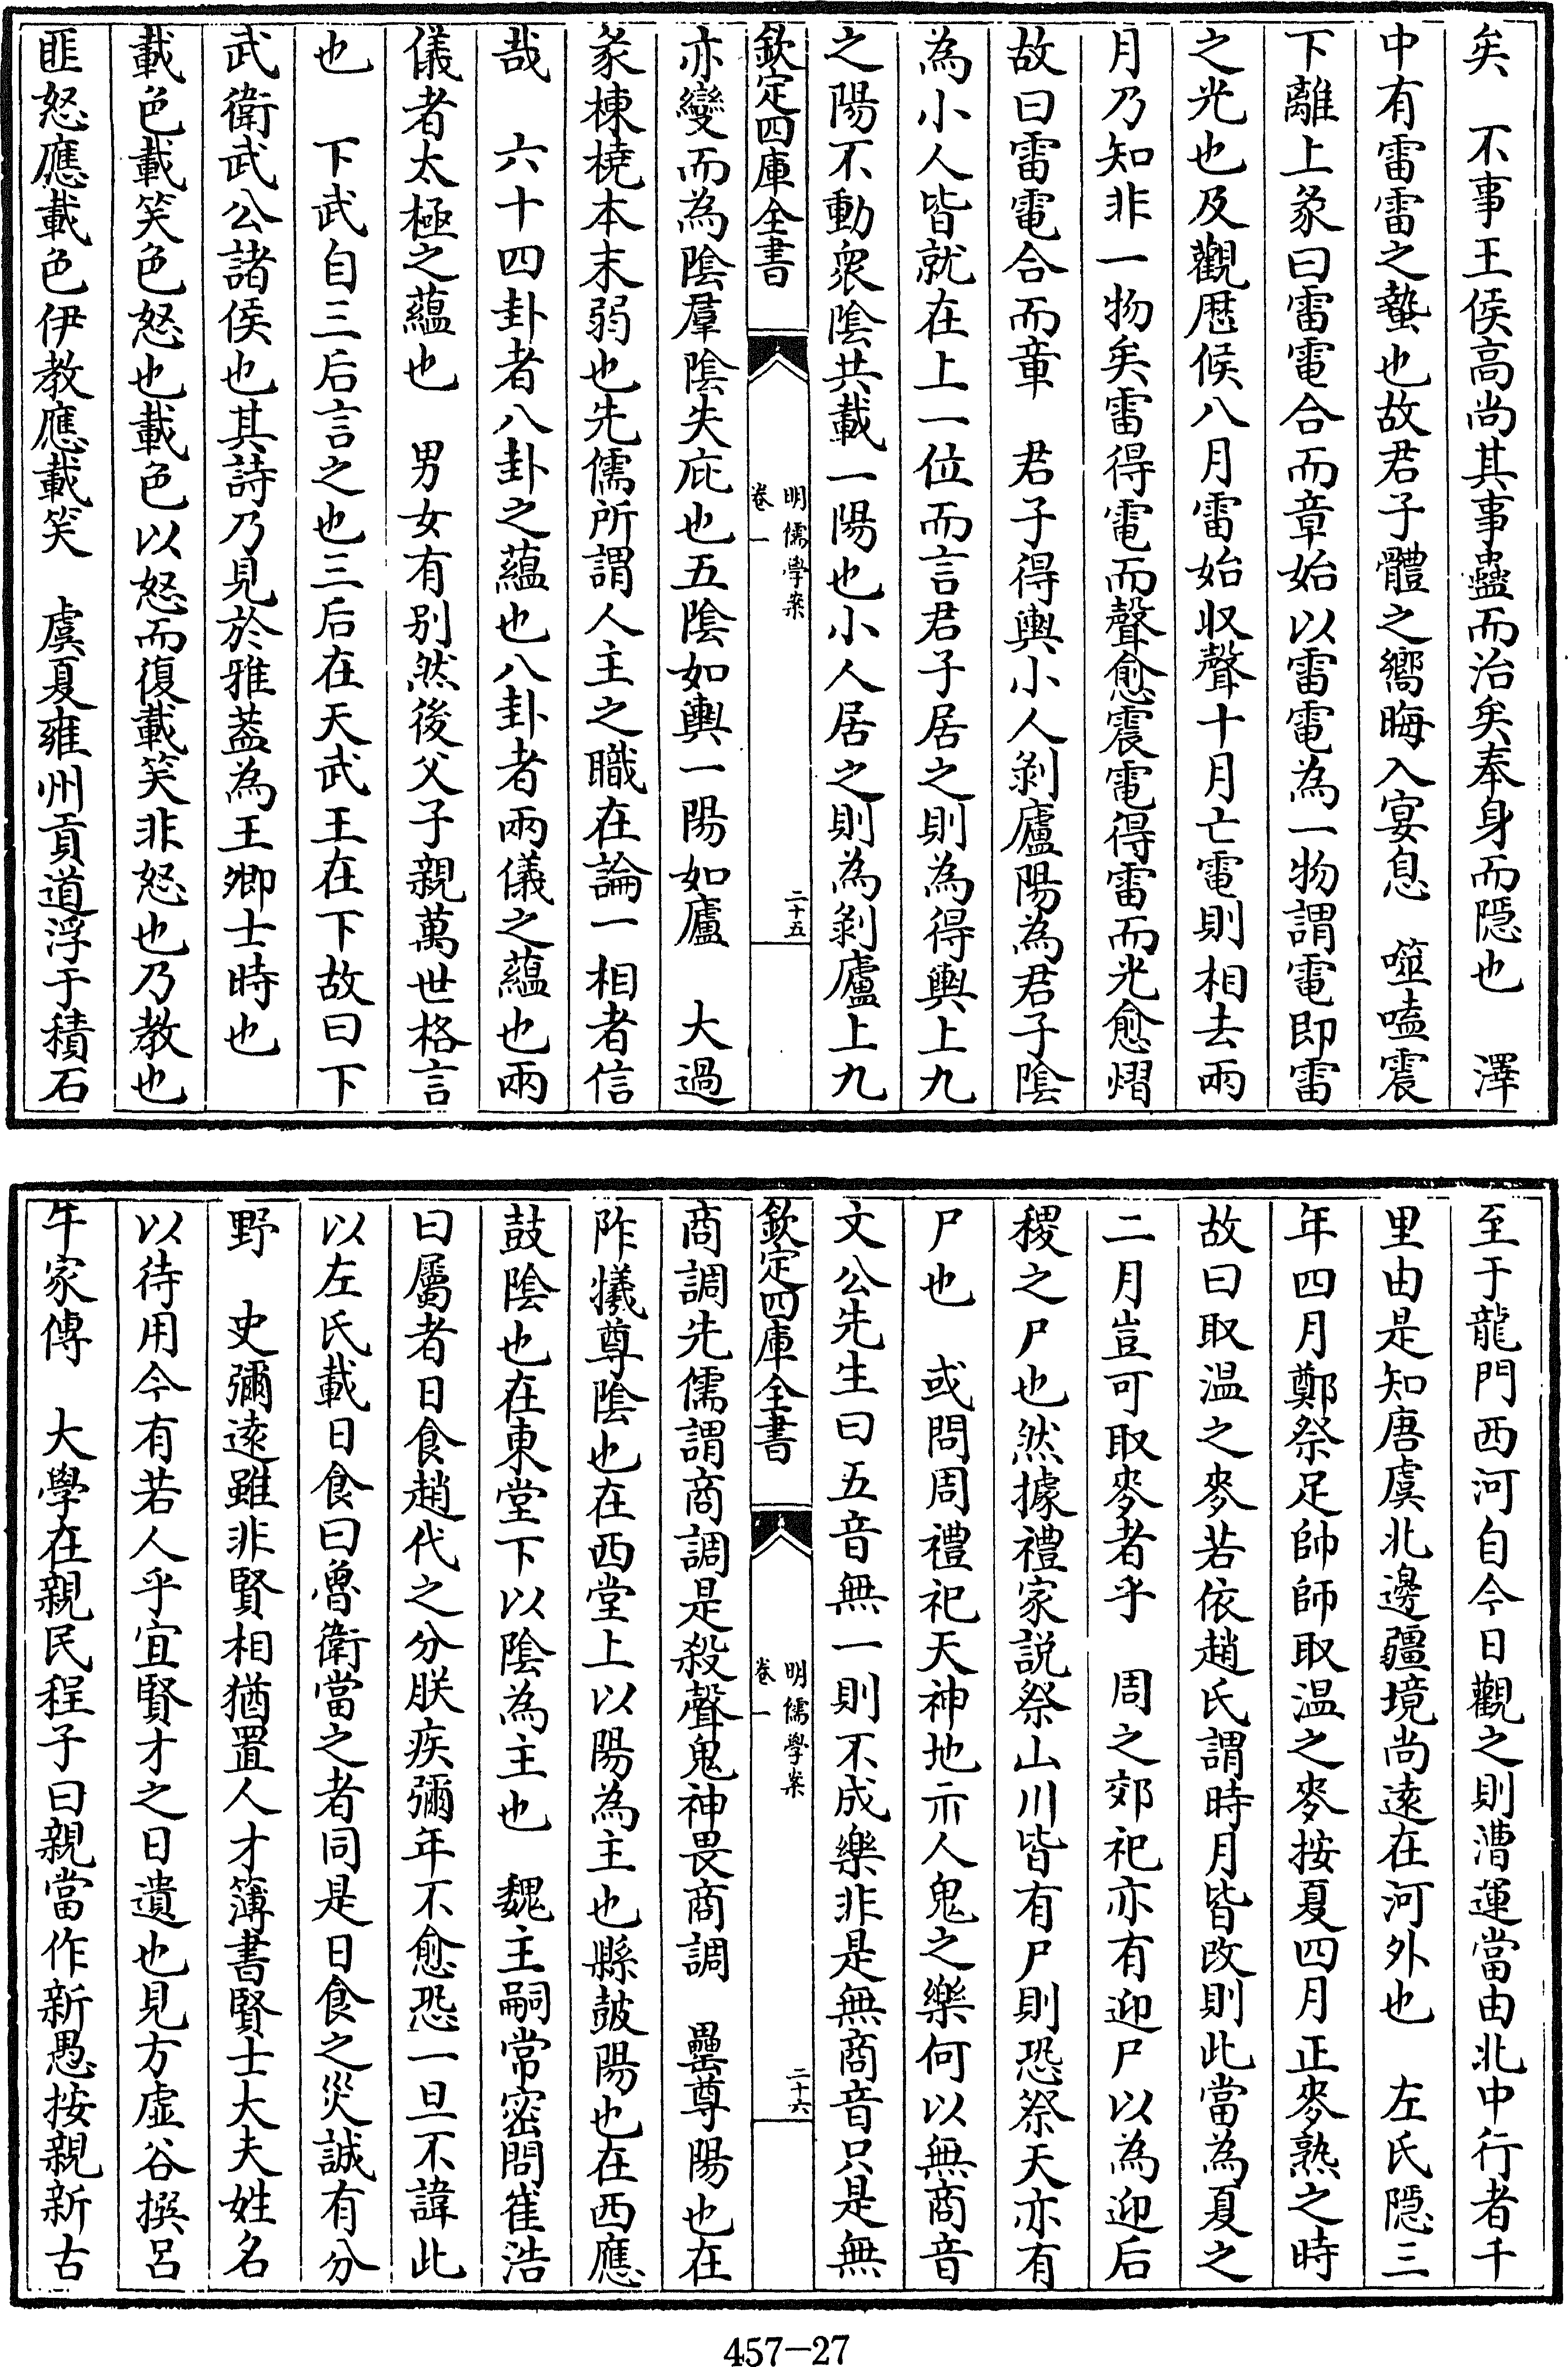 矣　不事王侯高尚其事蠱而治矣奉身而隱也　澤
中有雷雷之蟄也故君子體之嚮晦入宴息　噬嗑震
下離上彖曰雷電合而章始以雷電為一物謂電即雷
之光也及觀厯候八月雷始収聲十月亡電則相去兩
月乃知非一物矣雷得電而聲愈震電得雷而光愈熠
故曰雷電合而章　君子得輿小人剝廬陽為君子陰
為小人皆就在上一位而言君子居之則為得輿上九
之陽不動衆陰共載一陽也小人居之則為剝廬上九
欽定四庫全書　明儒學案　卷一　二十五
亦變而為陰羣陰失庇也五陰如輿一陽如廬　大過
彖棟橈本末弱也先儒所謂人主之職在論一相者信
哉　六十四卦者八卦之蘊也八卦者兩儀之蘊也兩
儀者太極之蘊也　男女有别然後父子親萬世格言
也　下武自三后言之也三后在天武王在下故曰下
武衛武公諸侯也其詩乃見於雅葢為王卿士時也
載色載笑色怒也載色以怒而復載笑非怒也乃教也
匪怒應載色伊教應載笑　虞夏雍州貢道浮于積石
至于龍門西河自今日觀之則漕運當由北中行者千
里由是知唐虞北邊疆境尚遠在河外也　左氏隱三
年四月鄭祭足帥師取温之麥按夏四月正麥熟之時
故曰取温之麥若依趙氏謂時月皆改則此當為夏之
二月豈可取麥者乎　周之郊祀亦有迎尸以為迎后
稷之尸也然據禮家説祭山川皆有尸則恐祭天亦有
尸也　或問周禮祀天神地示人鬼之樂何以無商音
文公先生曰五音無一則不成樂非是無商音只是無
欽定四庫全書　明儒學案　卷一　二十六
商調先儒謂商調是殺聲鬼神畏商調　罍尊陽也在
阼犧尊陰也在西堂上以陽為主也縣鼓陽也在西應
鼓陰也在東堂下以陰為主也　魏主嗣常密問崔浩
曰屬者日食趙代之分朕疾彌年不愈恐一旦不諱此
以左氏載日食曰魯衛當之者同是日食之災誠有分
野　史彌遠雖非賢相猶置人才簿書賢士大夫姓名
以待用今有若人乎宜賢才之日遺也見方虚谷撰呂
午家傳　大學在親民程子曰親當作新愚按親新古
457-27